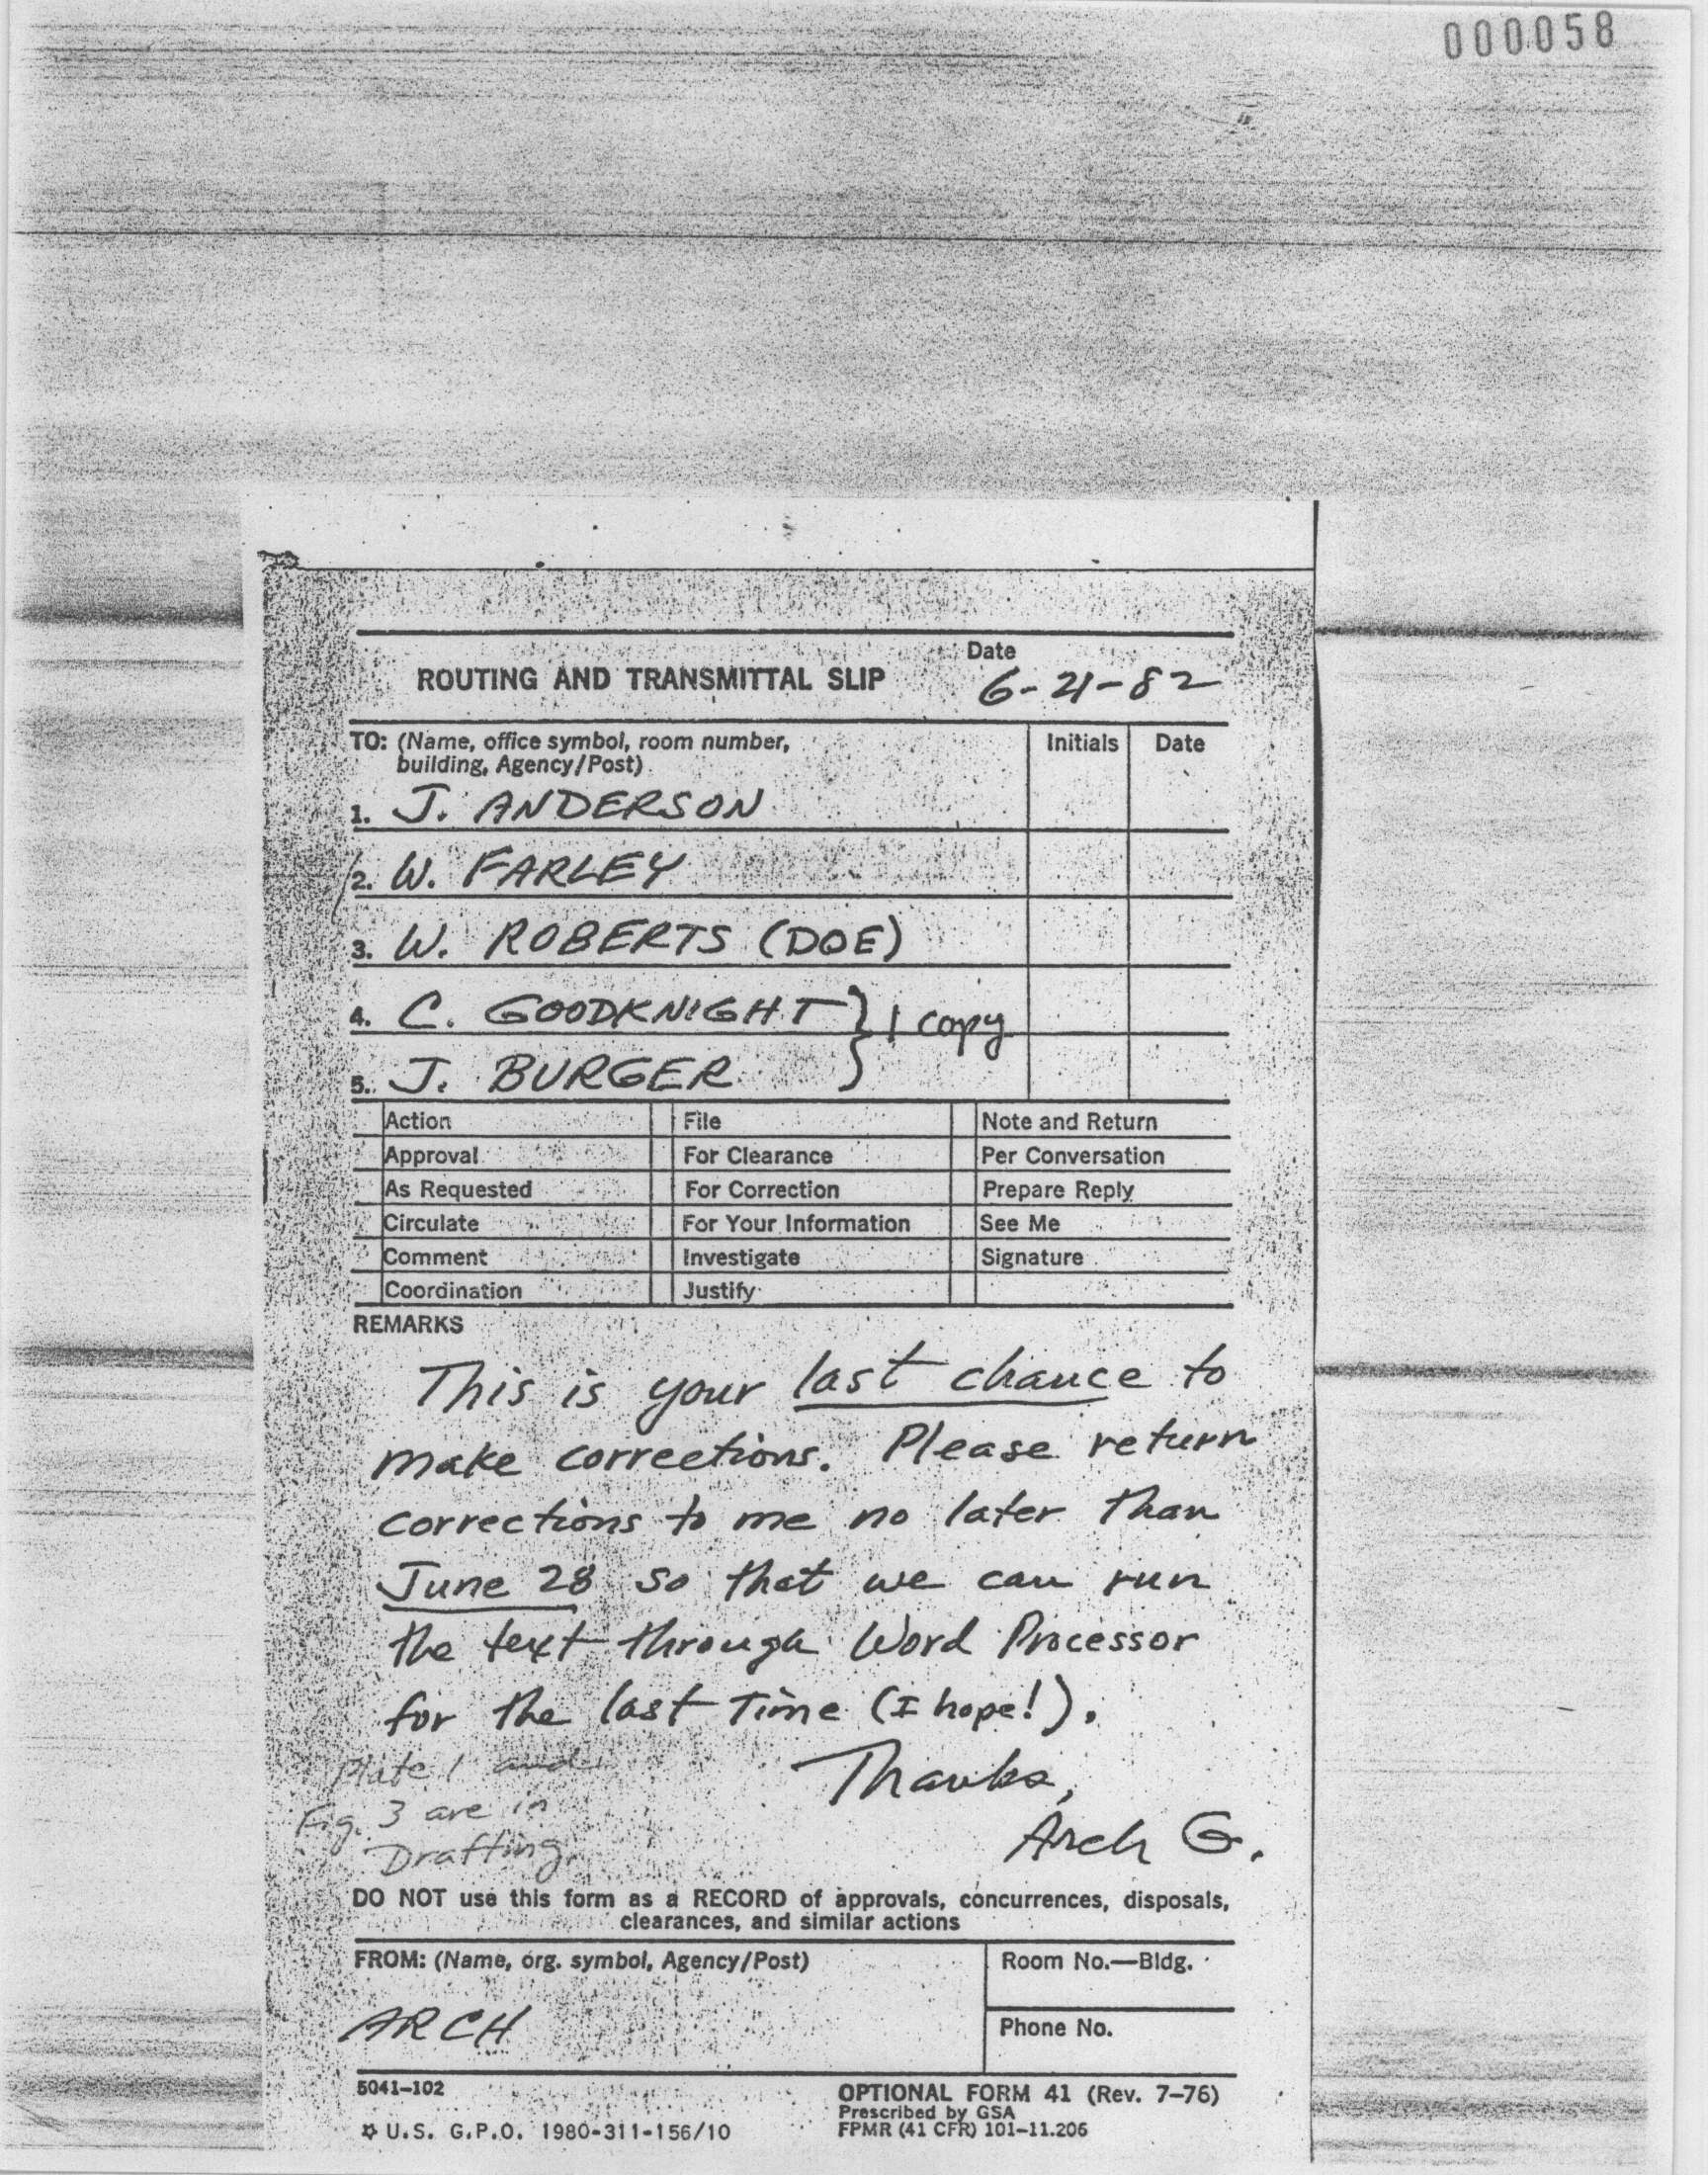 000058
ROUTING AND TRANSMITTAL SLIP
Date
6-21-82
TO: (Name, office symbol, room number,
building, Agency/Post)
Initials
Date
1. J. ANDERSON
2. W. FARLEY
3. W. ROBERTS (DOE)
4. C. GOODKNIGHT } 1 copy
5. J. BURGER
Action File Note and Return
Approval For Clearance Per Conversation
As Requested For Correction Prepare Reply
Circulate For Your Information See Me
Comment Investigate Signature
Coordination Justify
REMARKS
This is your last chance to
make corrections. Please return
corrections to me no later than
June 28 so that we can run
the text through Word Processor
for the last time (I hope!).
Plate 1 and
Fig. 3 are in
Drafting.
Thanks,
Arch G.
DO NOT use this form as a RECORD of approvals, concurrences, disposals,
clearances, and similar actions
FROM: (Name, org. symbol, Agency/Post)
Room No.—Bldg.
ARCH
Phone No.
5041-102
OPTIONAL FORM 41 (Rev. 7-76)
Prescribed by GSA
FPMR (41 CFR) 101-11.206
☆ U.S. G.P.O. 1980-311-156/10